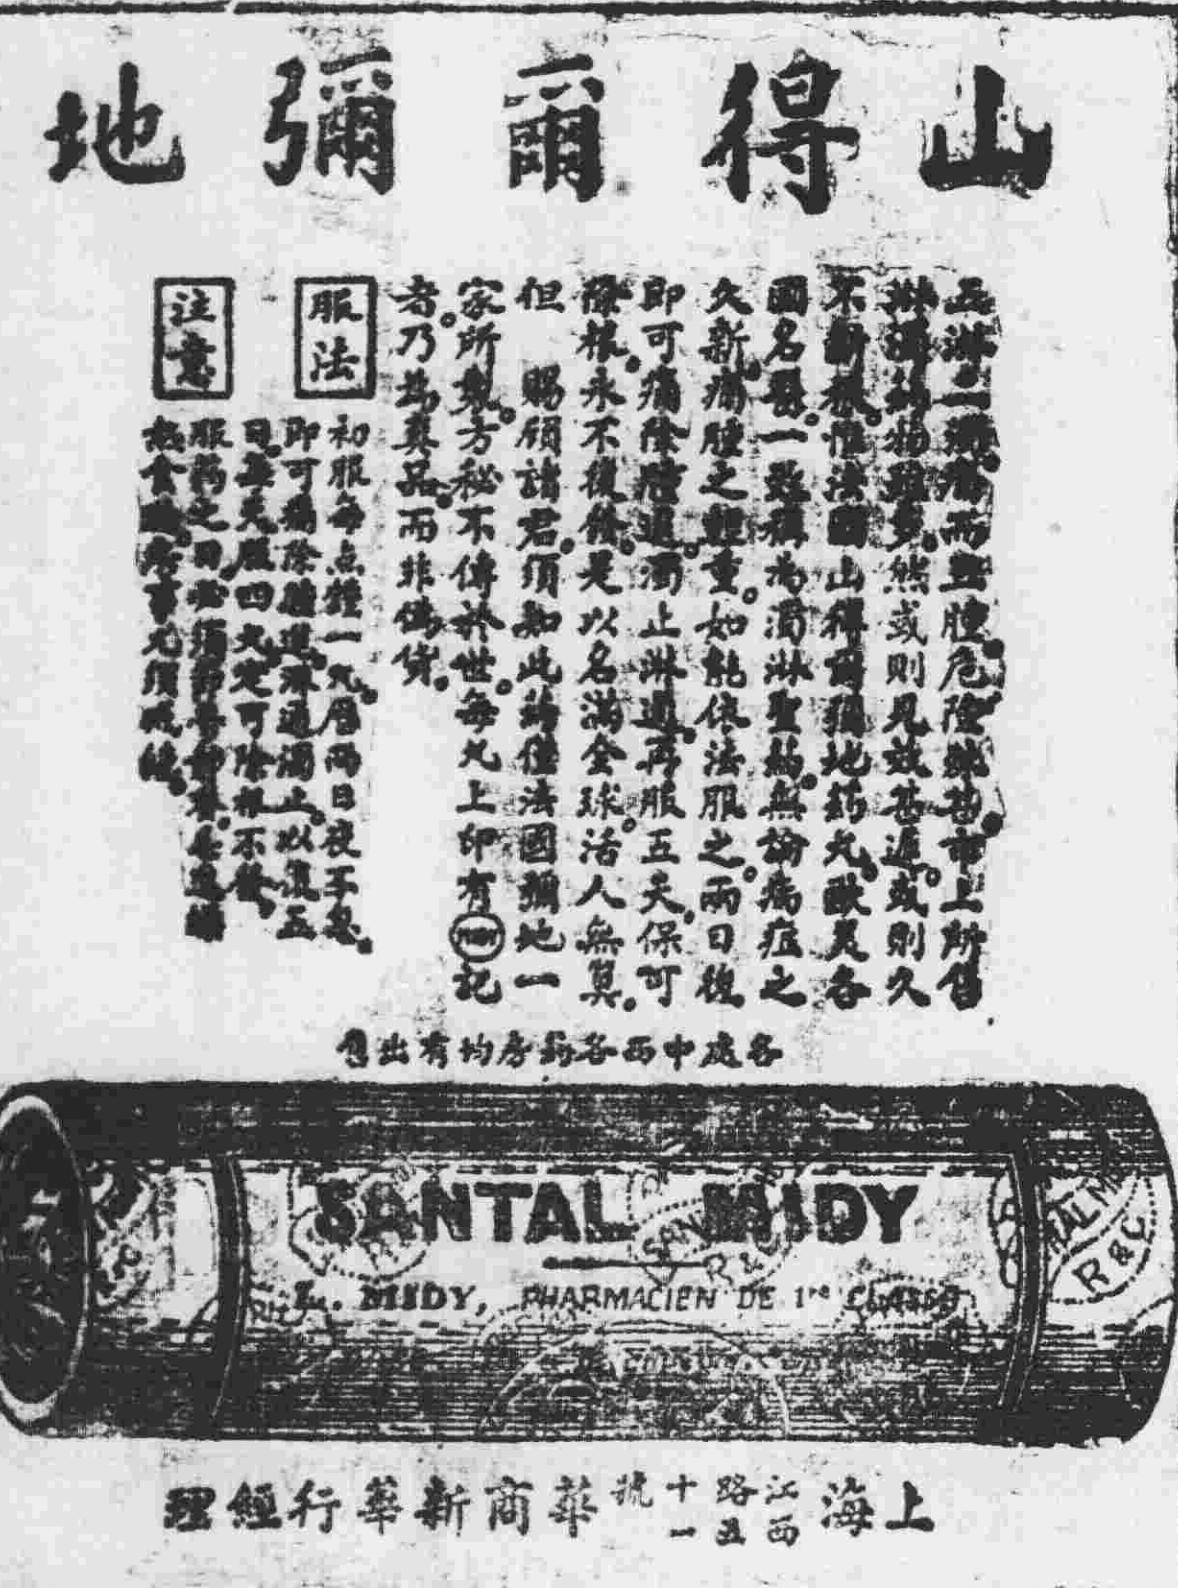 山得爾彌地
五淋二濁痛而且腫。危險殊甚。市上所售
淋濁葯物雖多。然或則見效甚遲。或則久
不斷根。惟法國山得爾彌地葯丸。歐美各
國名醫。一致稱為濁淋聖葯。無論病症之
久新。痛腫之輕重。如能依法服之。兩日後
即可痛除腫退。濁止淋通。再服五天。保可
除根。永不復發。是以名滿全球。活人無算。
但 賜顧諸君。須知此葯僅法國彌地一
家所製。方秘不傳於世。每丸上印有MIDY記
者。乃為真品。而非偽貨。
服法
初服每点鐘一丸。層兩日夜不息。
即可痛除腫退。淋通濁止。以後五
日。每天服四丸。定可除根不發。
注意
服葯之日。必須
房事尤須戒絕。
各處中西各葯房均有出售
SANTAL MIDY
L. MIDY, PHARMACIEN DE 1re CLASSE
R & C
上海江西路五十一號華商新華行經理